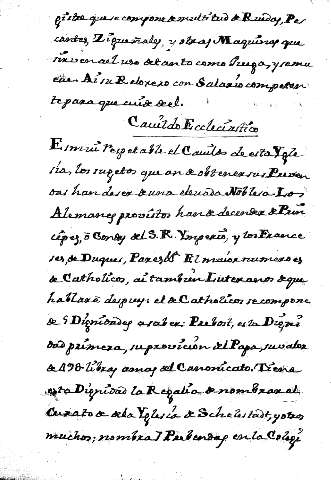 gistro que se compone de multitud de Ruedas, Pes
cantes, Zigueñales, y otras Maquinas que
sirven al uso de tanto como Juega, y se mu
eve: Ai su Reloxero con Salario competen
te para que cuide de el.
Cavildo Ecclesiastico
Es mui respetable el Cavildo de esta Ygle
sia, los sugetos que an de obtener sus Preven
das han de ser de una elevada Nobleza. Los
Alemanes provistos han de decender de Prin
cipes, ò Condes del S. R. Ymperio, y los France
ses, de Duques, Pares &. El maior numero es
de Catholicos, ai tambien Luteranos de que
hablarè despues: el de Catholicos se compone
de 5 Dignidades a saber: Prebost, esta Digni
dad primera, su provision del Papa, su valor
de 490 libras amas del Canonicato. Tiene
esta Dignidad la Regalia de nombrar al
Curato de la Yglesia de Schelestadt, y otros
muchos; nombra 7 Prebendas en la Colegi